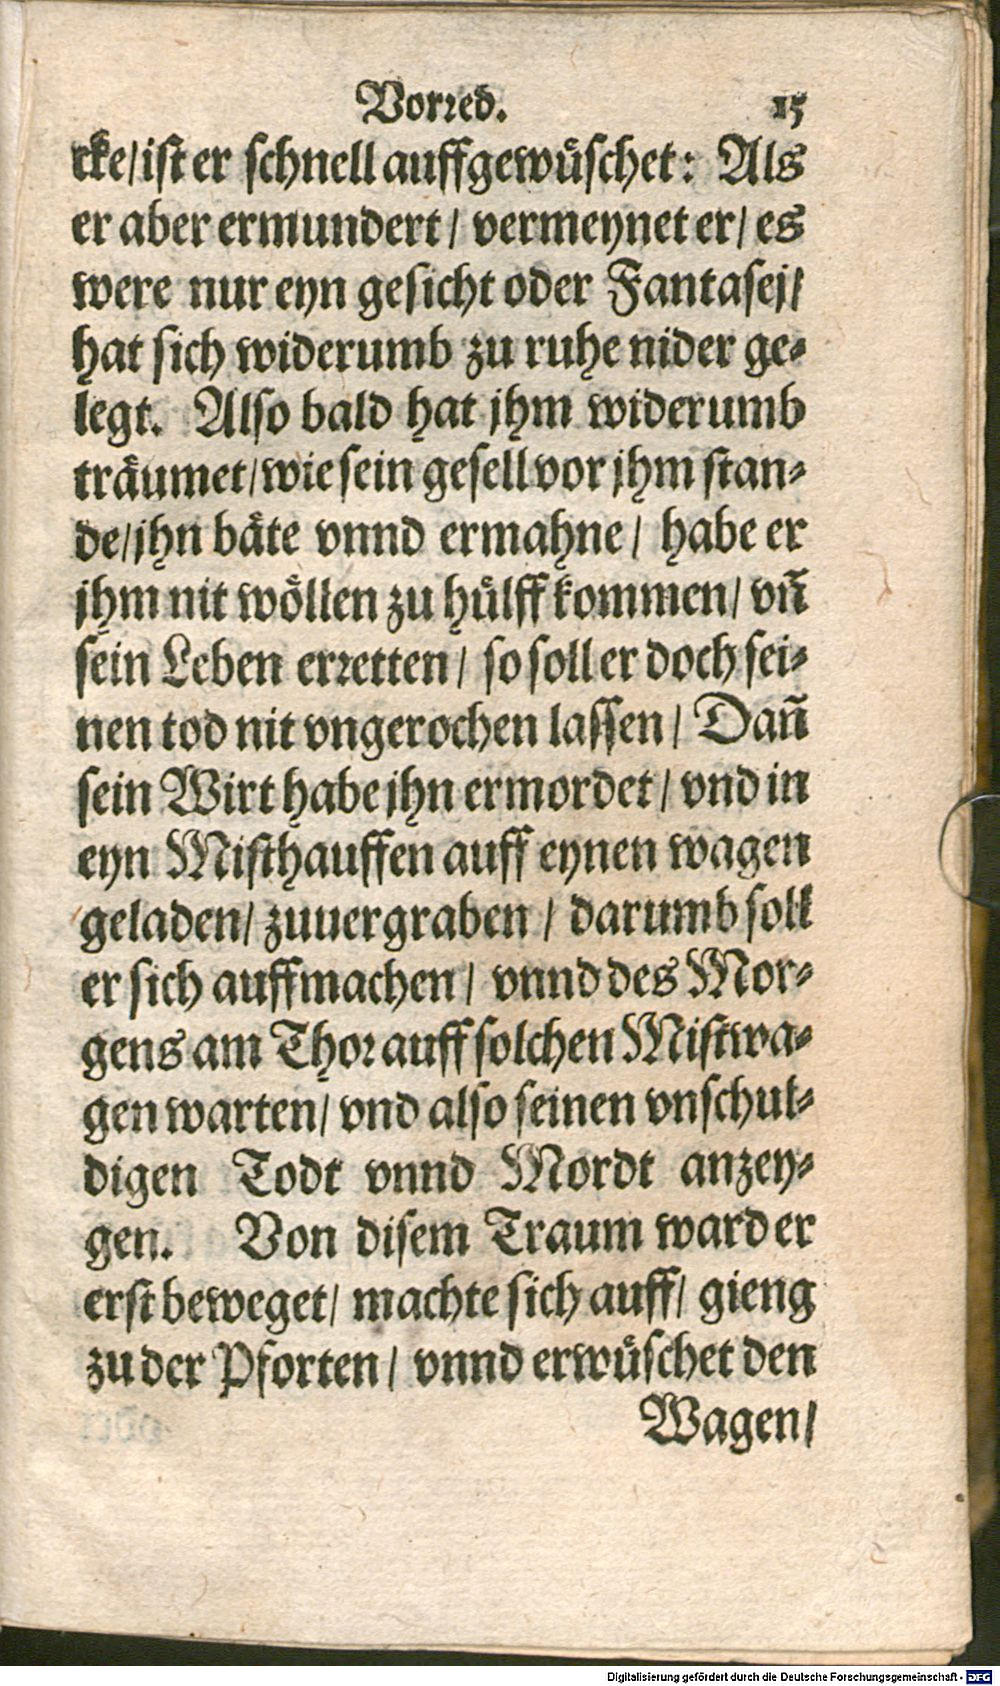 Vorred. 15
cke/ ist er schnell auffgewuͤschet: Als
er aber ermundert/ vermeynet er/ es
were nur eyn gesicht oder Fantasej/
hat sich widerumb zu ruhe nider ge-
legt. Also bald hat jhm widerumb
traͤumet/ wie sein gesell vor jhm stan-
de/ jhn baͤte vnnd ermahne/ habe er
jhm nit woͤllen zu huͤlff kommen/ vñ
sein Leben erretten/ so soll er doch sei-
nen tod nit vngerochen lassen/ Dañ
sein Wirt habe jhn ermordet/ vnd in
eyn Misthauffen auff eynen wagen
geladen/ zuuergraben/ darumb soll
er sich auffmachen/ vnnd des Mor-
gens am Thor auff solchen Mistwa-
gen warten/ vnd also seinen vnschul-
digen Todt vnnd Mordt anzey-
gen. Von disem Traum ward er
erst beweget/ machte sich auff/ gieng
zu der Pforten/ vnnd erwuͤschet den
Wagen/
Digitalisierung gefördert durch die Deutsche Forschungsgemeinschaft - DFG